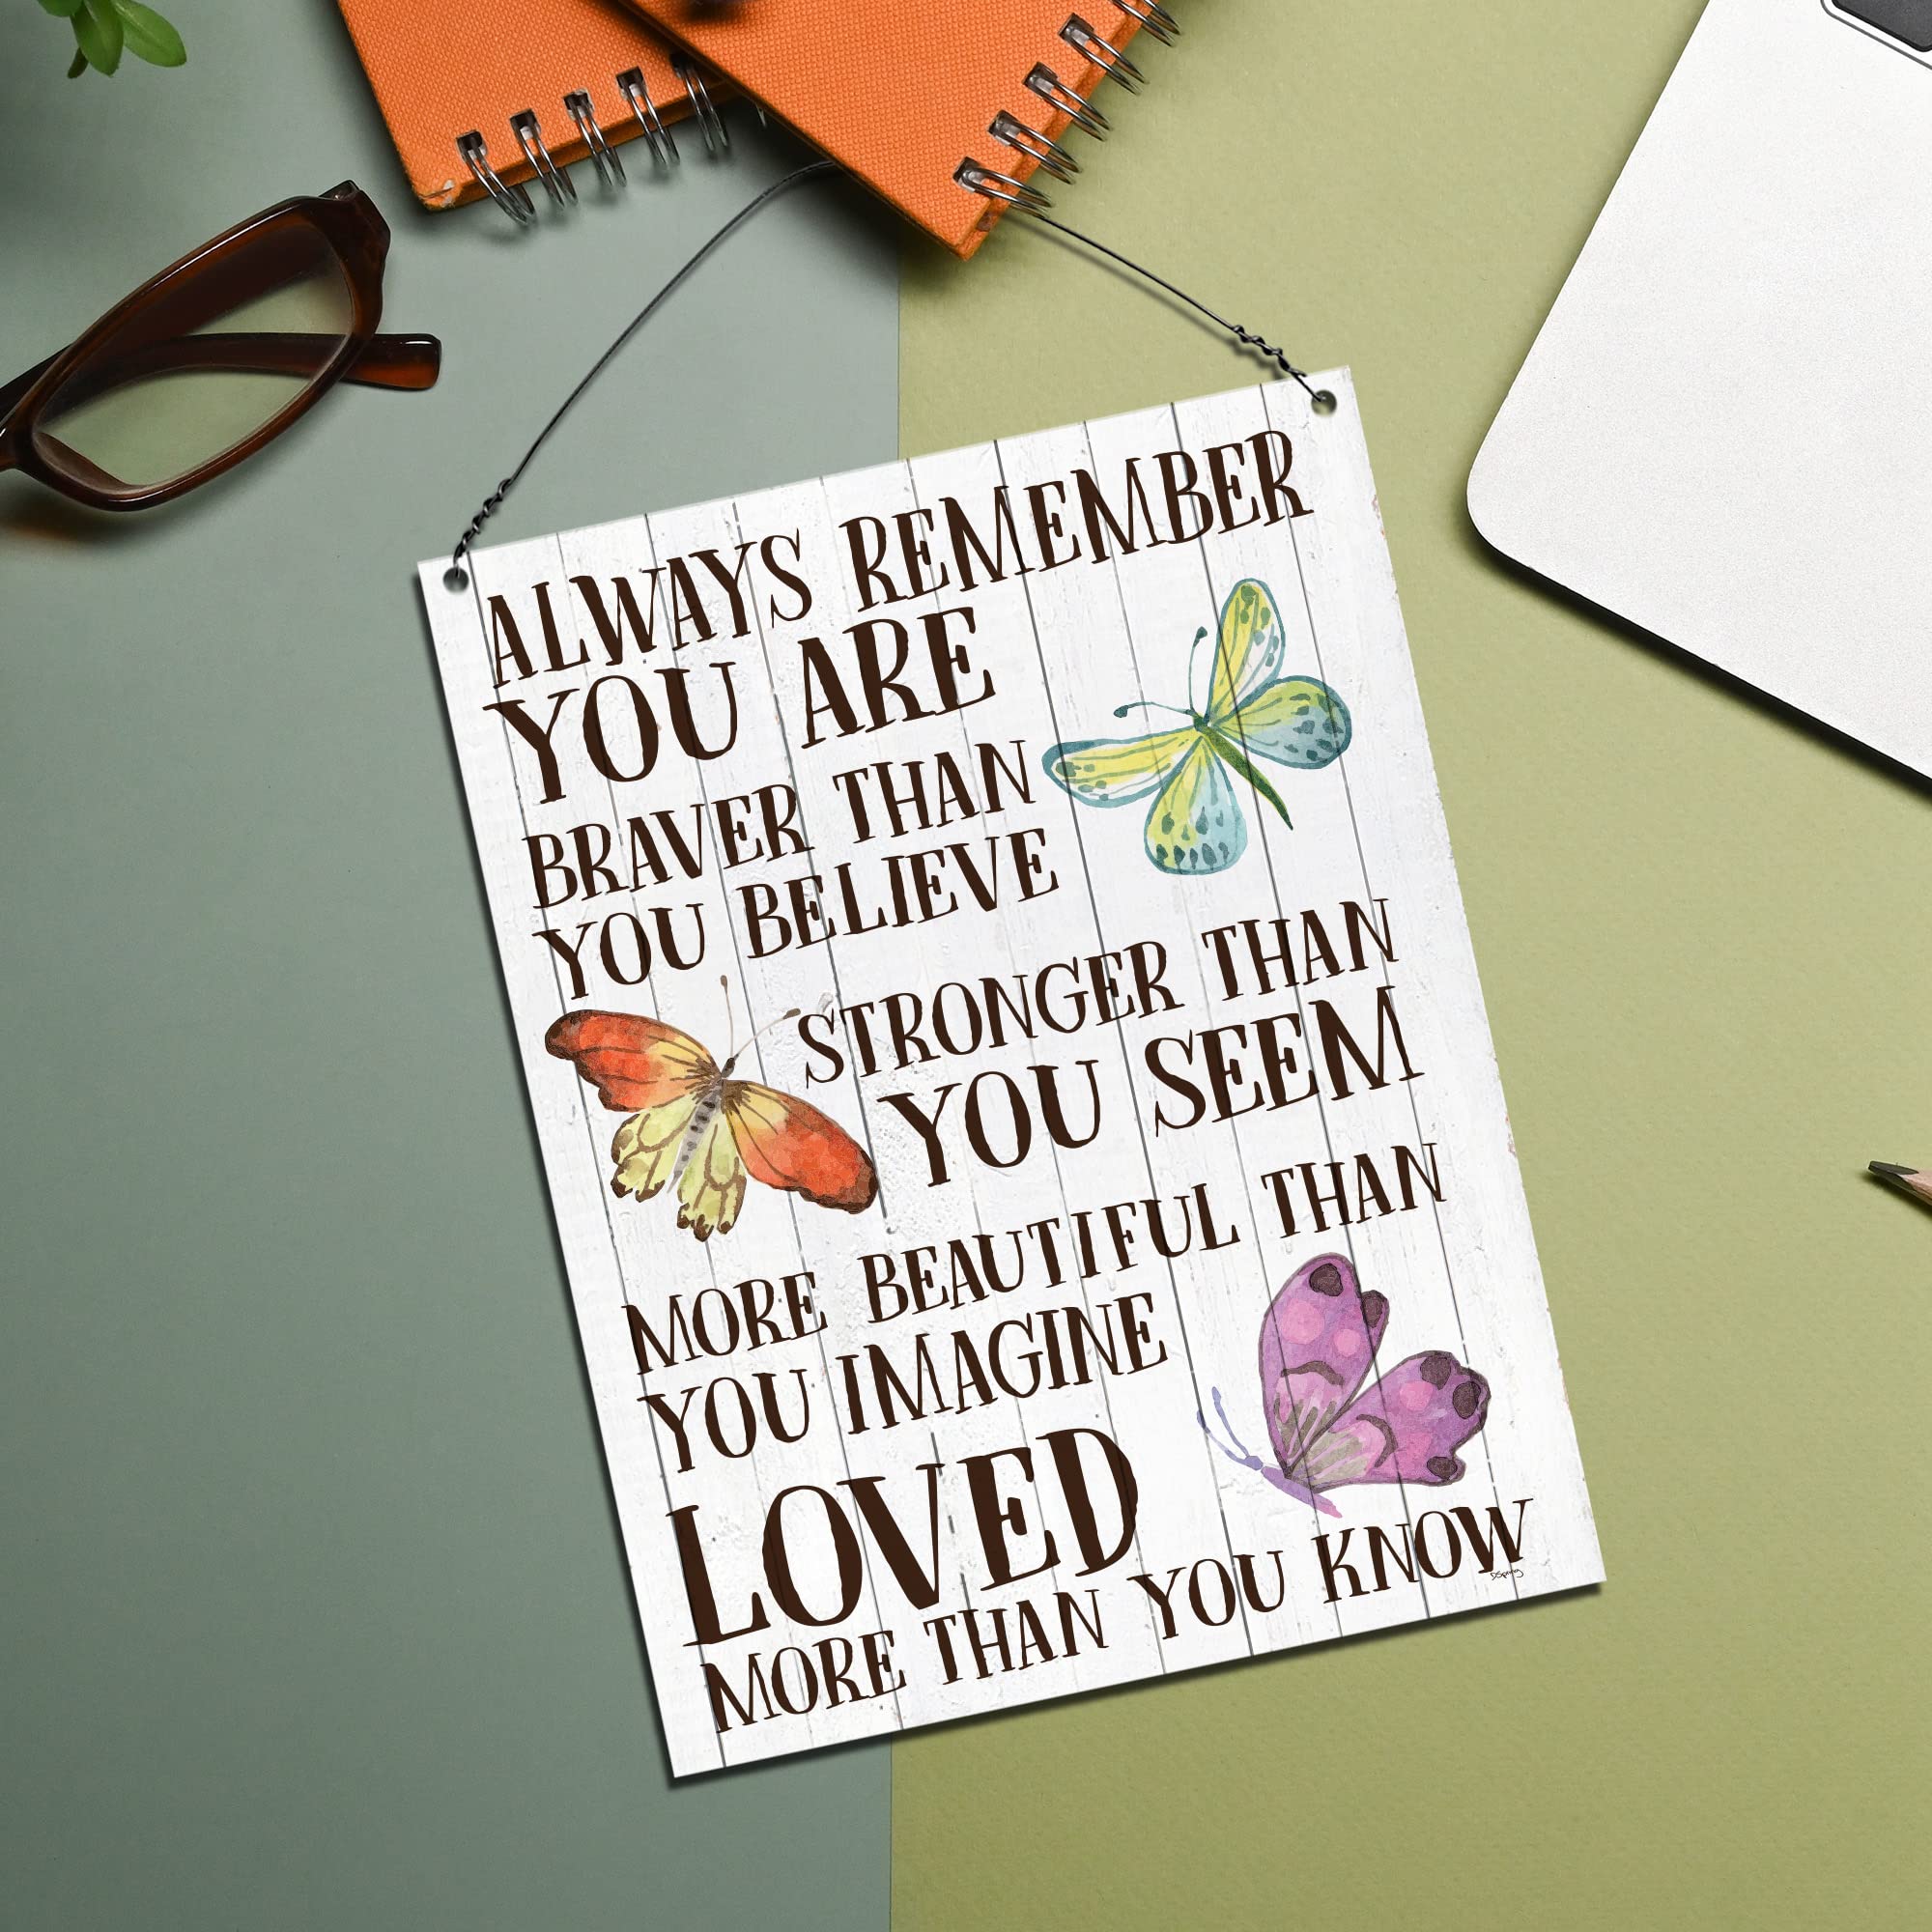 ALWAYS REMEMBER
YOU ARE
BRAVER THAN
YOU BELIEVE
STRONGER THAN
YOU SEEM
MORE BEAUTIFUL THAN
YOU IMAGINE
LOVED
MORE THAN YOU KNOW